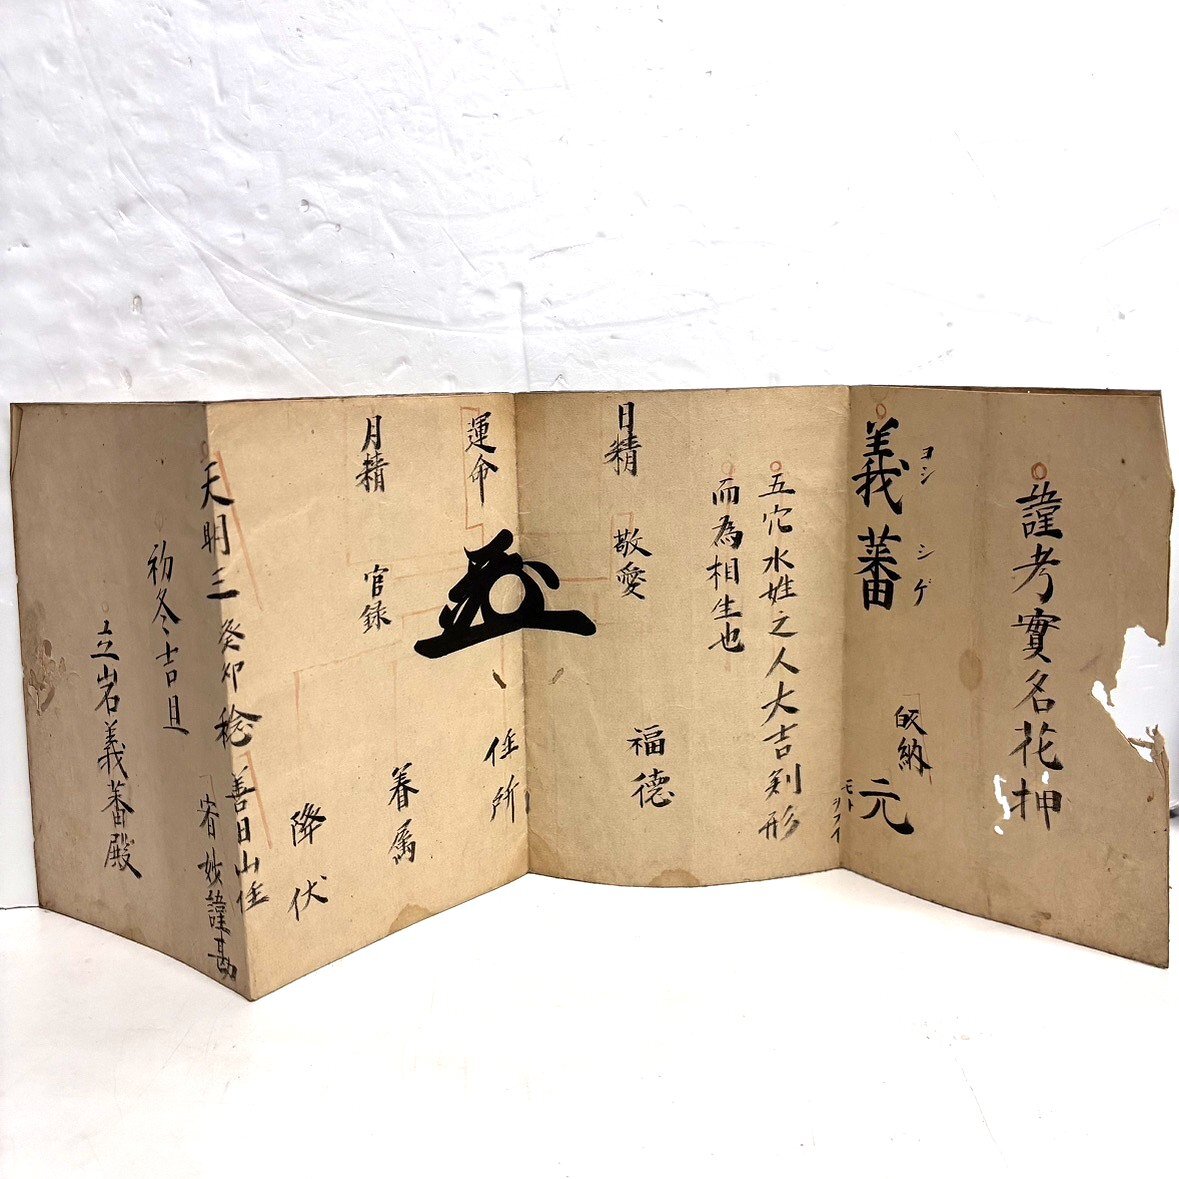 謹考實名花押
義蕃 皈納 元
ヨシ シゲ
モト ヲフイ
五穴水姓之人大吉剣形
而為相生也
日精 敬愛 福徳
運命 住所
月精 官録 眷属
降伏
天明三癸卯稔 善日山住
宥妙謹勘
初冬吉旦
立岩義蕃殿